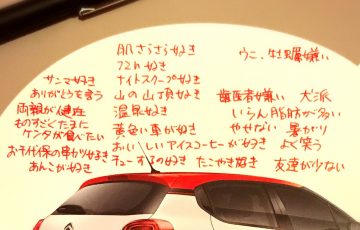 肌さらさら好き
72h好き
サンマ好き ナイトスクープ好き
ありがとうを言う 山の山頂好き
両親が健在 温泉好き
ものすごくたまに
ケンタが食いたい 黄色い車が好き
お千代保の串カツ好き おいしいアイスコーヒーが好き
あんこが好き チューするの好き たこやき好き
ウニ、牡蠣嫌い
歯医者嫌い 犬派
いらん脂肪が多い
やせない 暑がり
よく笑う
友達が少ない